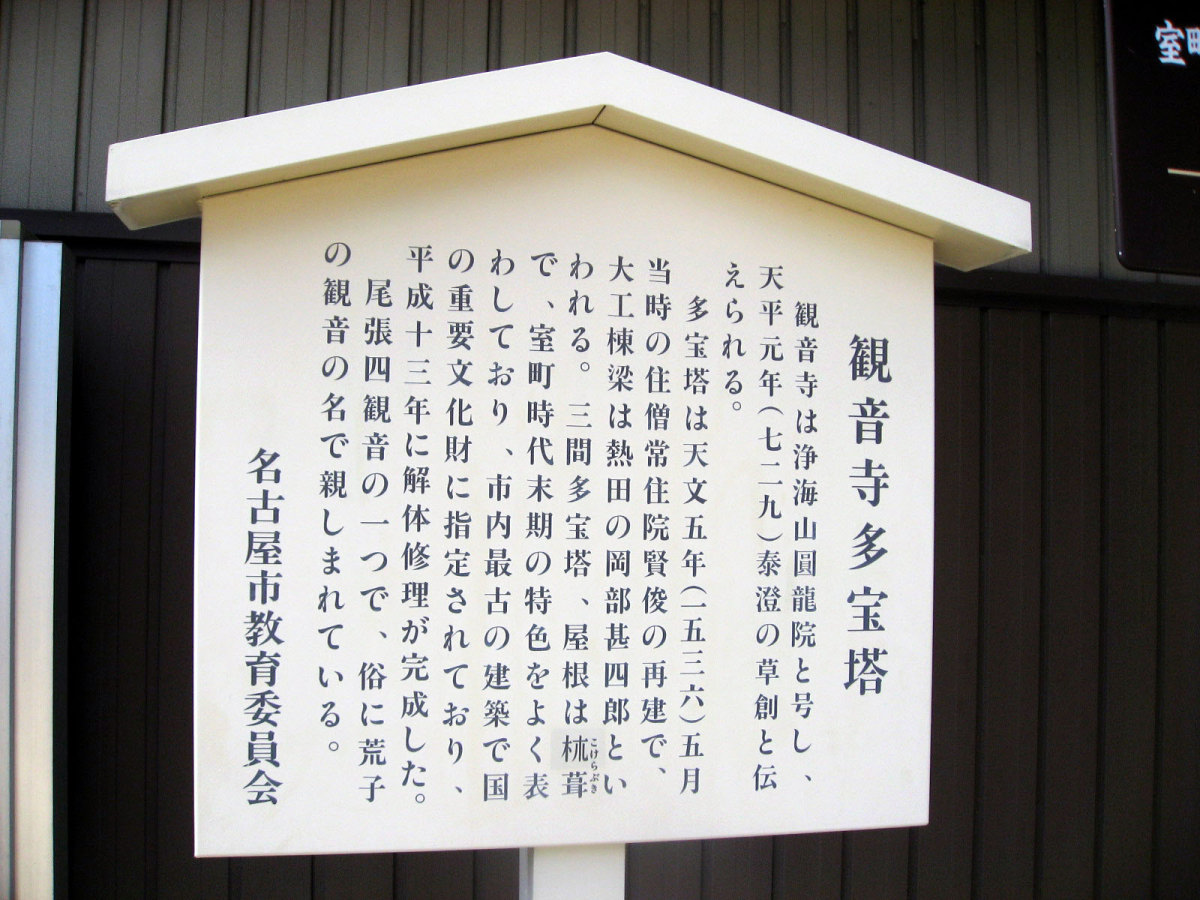 観音寺多宝塔
観音寺は浄海山圓龍院と号し、
天平元年(七二九)泰澄の草創と伝
えられる。
多宝塔は天文五年(一五三六)五月
当時の住僧常住院賢俊の再建で、
大工棟梁は熱田の岡部甚四郎とい
われる。三間多宝塔、屋根は杮葺
こけらぶき
で、室町時代末期の特色をよく表
わしており、市内最古の建築で国
の重要文化財に指定されており、
平成十三年に解体修理が完成した。
尾張四観音の一つで、俗に荒子
の観音の名で親しまれている。
名古屋市教育委員会